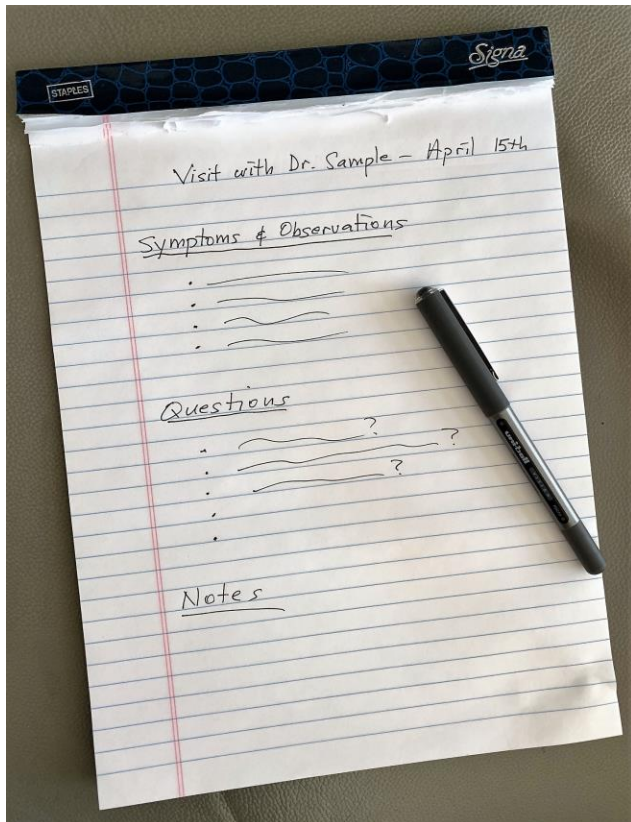 Signa
STAPLES
Visit with Dr. Sample – April 15th
Symptoms & Observations
Questions
?
?
?
Notes
uniball